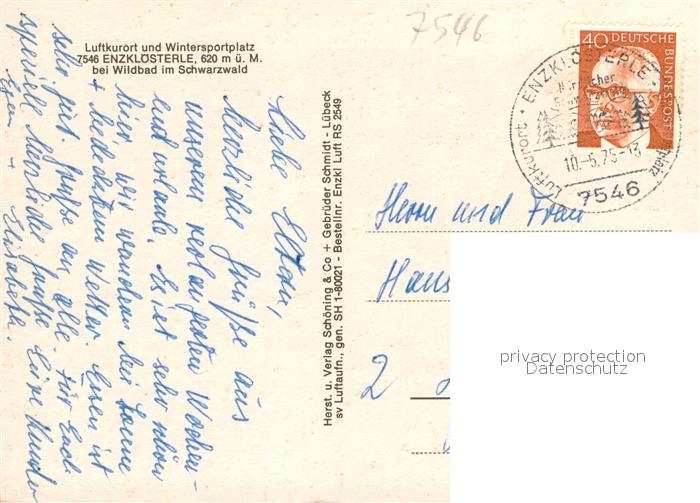 7546
Luftkurort und Wintersportplatz
7546 ENZKLÖSTERLE, 620 m ü. M.
bei Wildbad im Schwarzwald
Liebe Eltern,
herzliche Grüße aus
unserem verlängerten Wochen-
endurlaub. Es ist sehr schön
hier wir wandern bei Sonne
+ bedecktem Wetter. Essen ist
sehr gut. Grüße an alle. Für Euch
spezielle herzliche Grüße Eure Kinder
+ Elisabeth.
Herst. u. Verlag Schöning & Co + Gebrüder Schmidt - Lübeck
sv Luftaufn., gen. SH 1-80021 - Bestellnr. Enzkl Luft RS 2549
40 DEUTSCHE BUNDESPOST
ENZKLÖSTERLE
Luftkurort
10.-5.75-13
7546
Herrn und Frau
Hans
2
privacy protection
Datenschutz